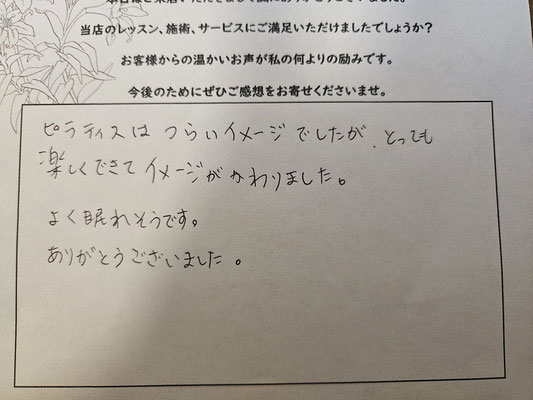 本日はご来店いただきまして誠にありがとうございました。
当店のレッスン、施術、サービスにご満足いただけましたでしょうか？
お客様からの温かいお声が私の何よりの励みです。
今後のためにぜひご感想をお寄せくださいませ。
ピラティスは つらいイメージでしたが、とっても
楽しくできて イメージがかわりました。
よく眠れそうです。
ありがとうございました。